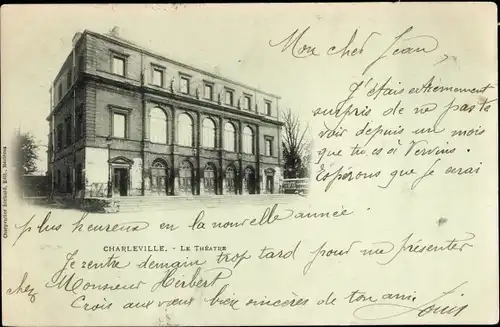 Mon cher Jean,
J'étais extrêmement
surpris de ne pas te
voir depuis un mois
que tu es à Vervins.
Espérons que je serai
plus heureux en la nouvelle année.
CHARLEVILLE. - LE THÉATRE
Je rentre demain trop tard pour me présenter
chez Monsieur Herbert
Crois aux vœux bien sincères de ton ami Louis